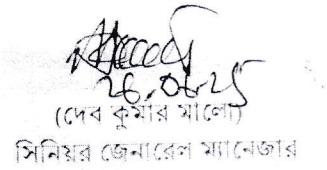 26.06.25
(দেব কুমার মালো)
সিনিয়র জেনারেল ম্যানেজার